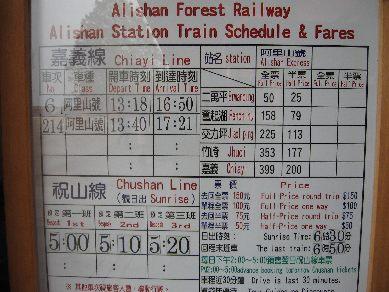 Alishan Forest Railway
Alishan Station Train Schedule & Fares
嘉義線 Chiayi Line
車次 No 種種 Class 開車時刻 Depart Time 到達時刻 Arrival Time
6 阿里山號 13:18 16:50
214 阿里山號 13:40 17:21
祝山線 Chushan Line
(觀日出 Sunrise)
第一班 1st 第二班 2nd 第三班 3rd
5:00 5:10 5:20
站名 station 阿里山號 Alishan Express
全票 Full Price 半票 Half Price 全票 Full Price 半票 Half Price
二萬坪 Erwanping 50 25
奮起湖 158 79
交力坪 Jiaoliping 225 113
竹崎 Jhuci 353 177
嘉義 Chiayi 399 200
票價 Price
去回全票 150元 Full Price round trip $150
單程全票 100元 Full Price one way $100
去回半票 75元 Half-Price round trip $75
單程半票 50元 Half-Price one way $50
日出時刻: Sunrise Time: 6時30分
回程末班車 The last train: 6時50分
每日下午2:00~5:00預售翌日祝山線車票
PM2:00~5:00advance booking tomorrow Chushan tickets